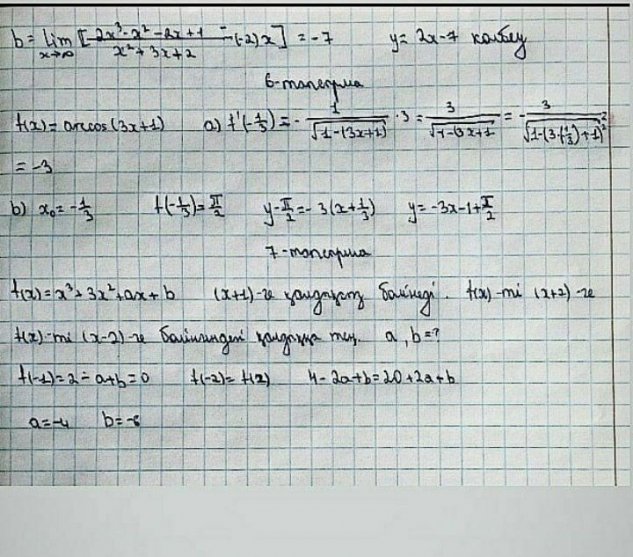 b = lim x→∞ [(-2x³-x²-2x+1)/(x²+3x+2) - (-2)x] = -7 y = 2x-7 көлбеу
6-тапсырма
f(x) = arccos(3x+1) a) f'(-1/3) = - 1/√(1-(3x+1)) · 3 = 3/√(1-(3x+1 = - 3/√(1-(3·(-1/3)+1)²
= -3
b) x₀ = -1/3 f(-1/3) = π/2 y-π/2 = -3(x+1/3) y = -3x-1+π/2
7-тапсырма
f(x) = x³+3x²+ax+b (x+1)-ге қалдықсыз бөлінеді. f(x)-ті (x+2)-ге
f(x)-ті (x-2)-ге бөлгендегі қалдыққа тең. a, b = ?
f(-1) = 2-a+b = 0 f(-2) = f(2) 4-2a+b = 20+2a+b
a = -4 b = -6